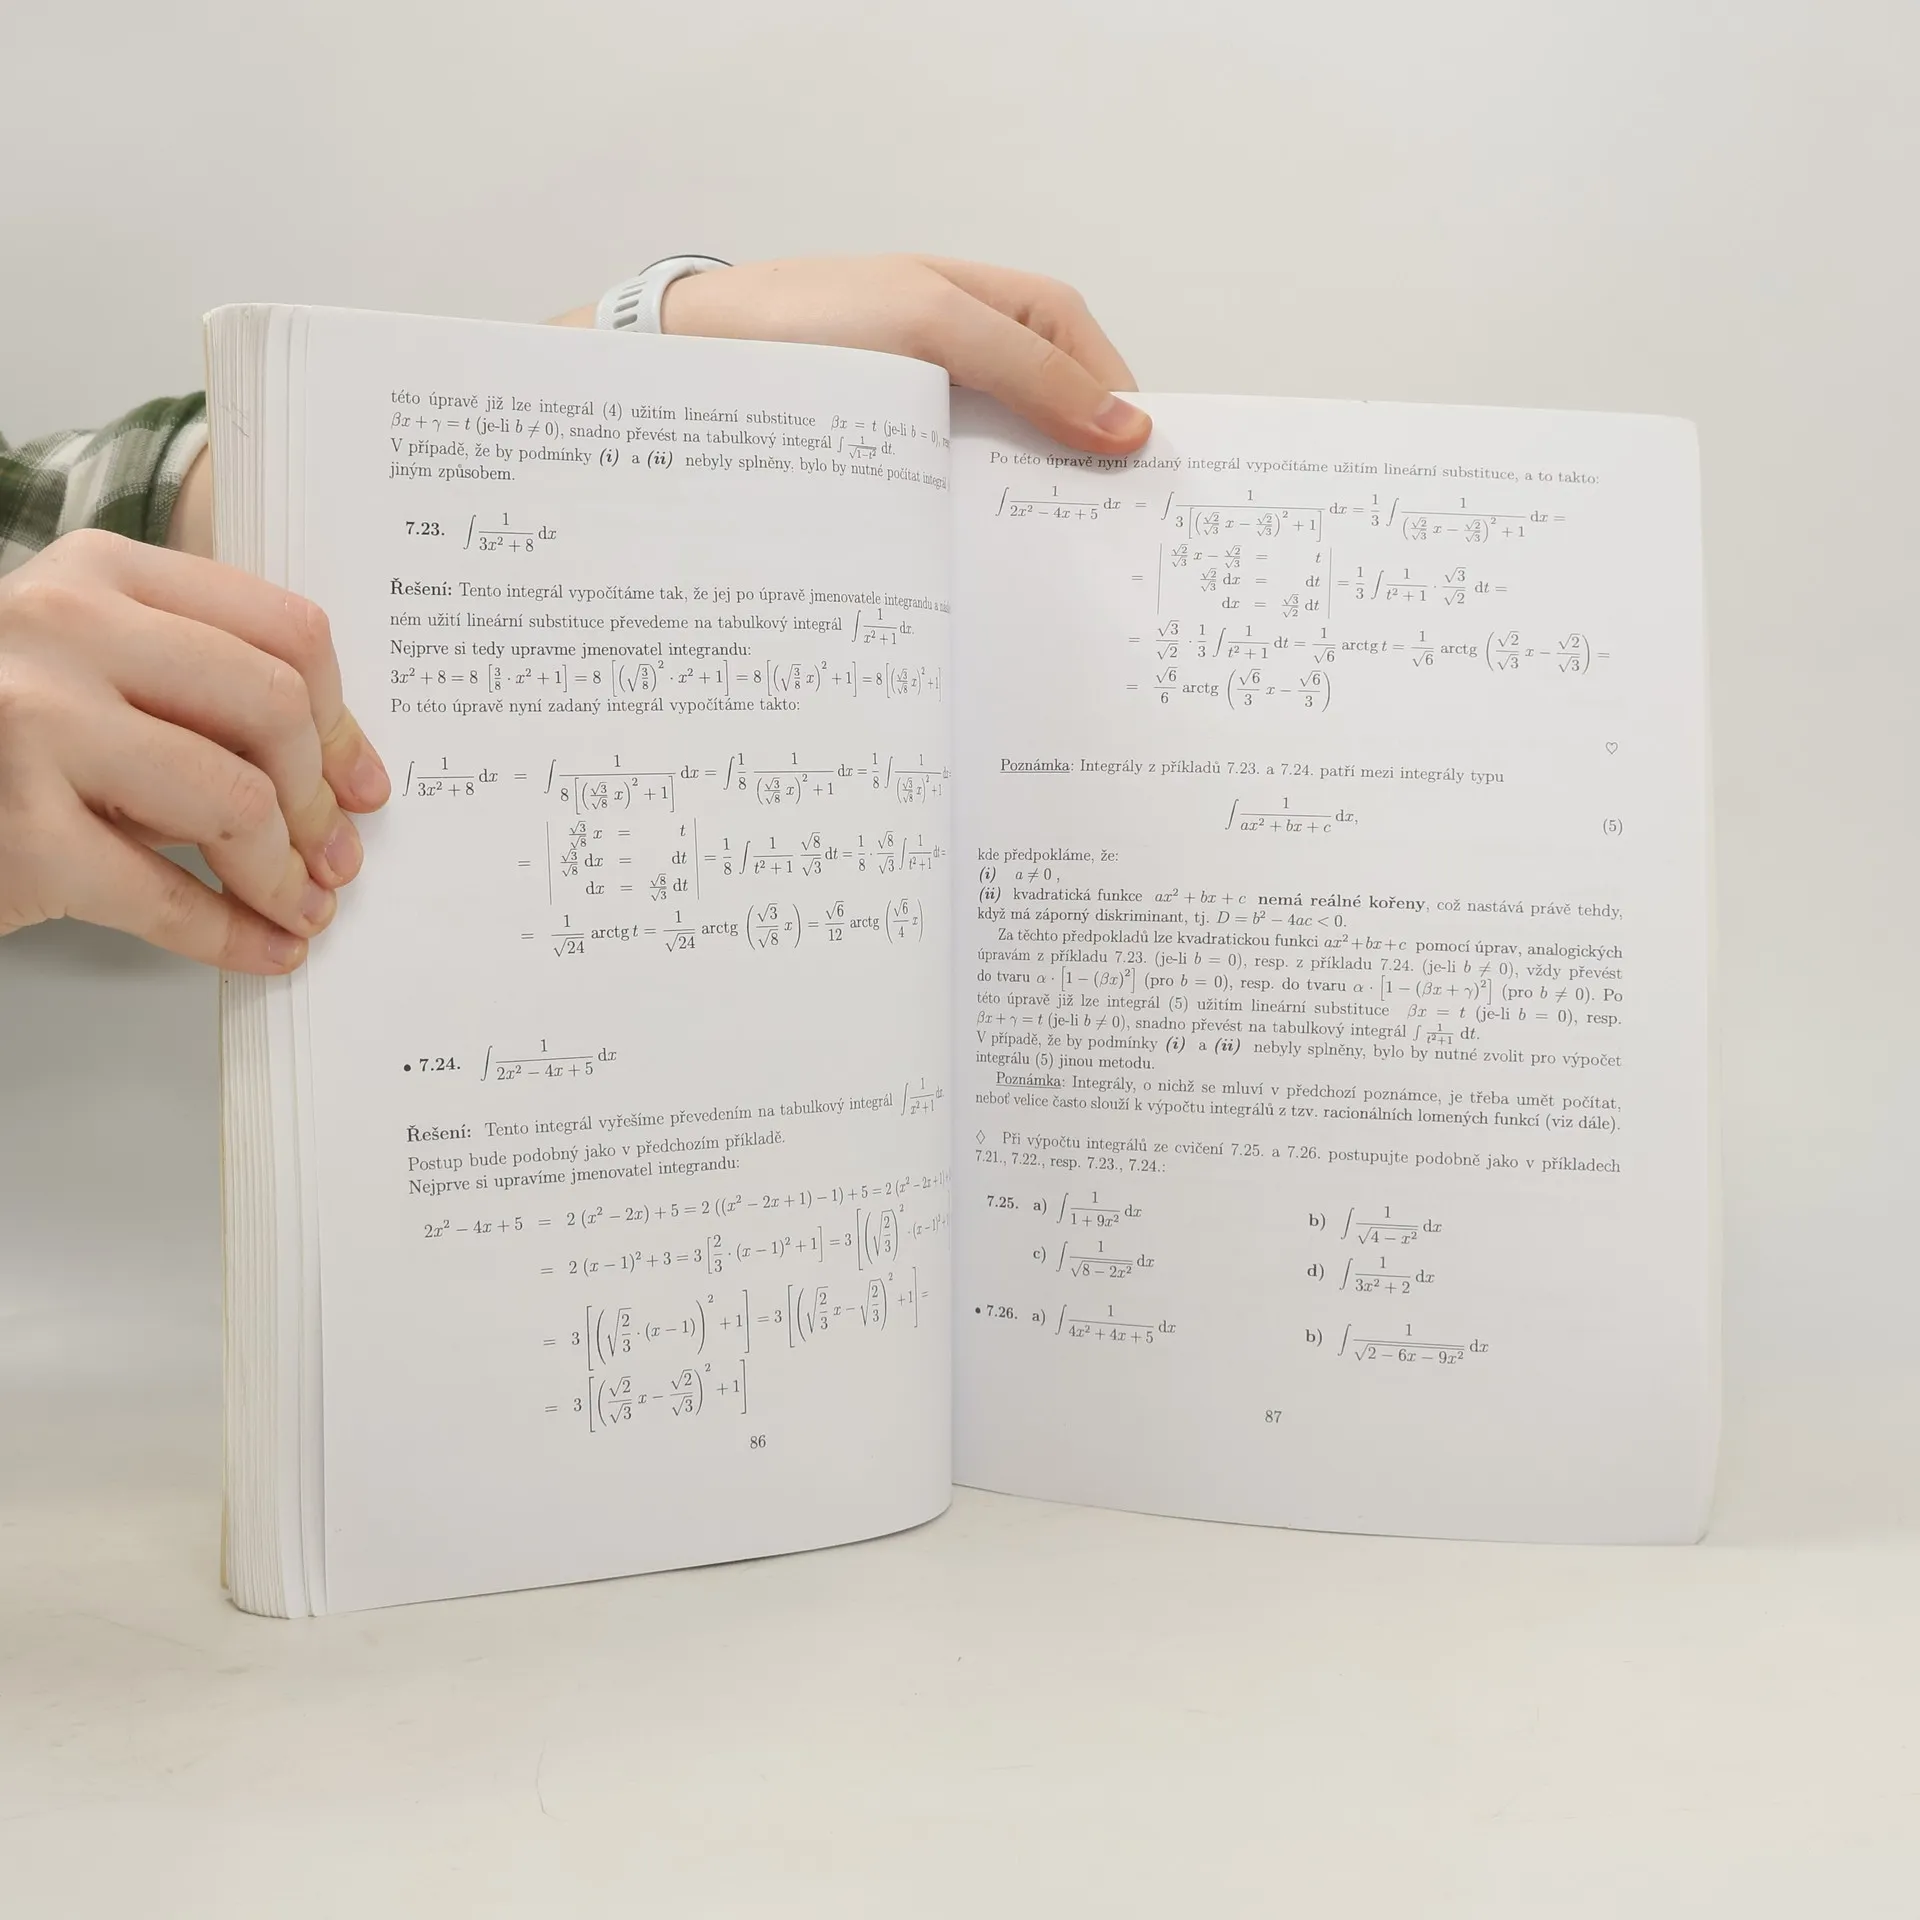 této úpravě již lze integrál (4) užitím lineární substituce βx = t (je-li b = 0),
βx + γ = t (je-li b ≠ 0), snadno převést na tabulkový integrál ∫ 1/√(1−t²) dt.
V případě, že by podmínky (i) a (ii) nebyly splněny, bylo by nutné počítat integrál
jiným způsobem.
7.23. ∫ 1/(3x² + 8) dx
Řešení: Tento integrál vypočítáme tak, že jej po úpravě jmenovatele integrandu a
ném užití lineární substituce převedeme na tabulkový integrál ∫ 1/(x² + 1) dx.
Nejprve si tedy upravme jmenovatel integrandu:
3x² + 8 = 8 [3/8 · x² + 1] = 8 [(√(3/8))² · x² + 1] = 8 [(√(3/8) x)² + 1] = 8 [(√3/√8 x)² + 1]
Po této úpravě nyní zadaný integrál vypočítáme takto:
∫ 1/(3x² + 8) dx = ∫ 1/(8 [(√3/√8 x)² + 1]) dx = ∫ 1/8 1/((√3/√8 x)² + 1) dx = 1/8 ∫ 1/((√3/√8 x)² + 1) dx =
= | √3/√8 x = t
√3/√8 dx = dt
dx = √8/√3 dt | = 1/8 ∫ 1/(t² + 1) √8/√3 dt = 1/8 · √8/√3 ∫ 1/(t² + 1) dt =
= 1/√24 arctg t = 1/√24 arctg (√3/√8 x) = √6/12 arctg (√6/4 x)
• 7.24. ∫ 1/(2x² − 4x + 5) dx
Řešení: Tento integrál vyřešíme převedením na tabulkový integrál ∫ 1/(x² + 1) dx.
Postup bude podobný jako v předchozím příkladě.
Nejprve si upravíme jmenovatel integrandu:
2x² − 4x + 5 = 2 (x² − 2x) + 5 = 2 ((x² − 2x + 1) − 1) + 5 = 2 (x² − 2x + 1)
= 2 (x − 1)² + 3 = 3 [2/3 · (x − 1)² + 1] = 3 [(√(2/3))² · (x − 1)² +
= 3 [(√(2/3) · (x − 1))² + 1] = 3 [(√(2/3) x − √(2/3))² + 1] =
= 3 [(√2/√3 x − √2/√3)² + 1]
86
Po této úpravě nyní zadaný integrál vypočítáme užitím lineární substituce, a to takto:
∫ 1/(2x² − 4x + 5) dx = ∫ 1/(3 [(√2/√3 x − √2/√3)² + 1]) dx = 1/3 ∫ 1/((√2/√3 x − √2/√3)² + 1) dx =
= | √2/√3 x − √2/√3 = t
√2/√3 dx = dt
dx = √3/√2 dt | = 1/3 ∫ 1/(t² + 1) · √3/√2 dt =
= √3/√2 · 1/3 ∫ 1/(t² + 1) dt = 1/√6 arctg t = 1/√6 arctg (√2/√3 x − √2/√3) =
= √6/6 arctg (√6/3 x − √6/3)
♡
Poznámka: Integrály z příkladů 7.23. a 7.24. patří mezi integrály typu
∫ 1/(ax² + bx + c) dx, (5)
kde předpokláme, že:
(i) a ≠ 0 ,
(ii) kvadratická funkce ax² + bx + c nemá reálné kořeny, což nastává právě tehdy,
když má záporný diskriminant, tj. D = b² − 4ac < 0.
Za těchto předpokladů lze kvadratickou funkci ax² + bx + c pomocí úprav, analogických
úpravám z příkladu 7.23. (je-li b = 0), resp. z příkladu 7.24. (je-li b ≠ 0), vždy převést
do tvaru α · [1 − (βx)²] (pro b = 0), resp. do tvaru α · [1 − (βx + γ)²] (pro b ≠ 0). Po
této úpravě již lze integrál (5) užitím lineární substituce βx = t (je-li b = 0), resp.
βx + γ = t (je-li b ≠ 0), snadno převést na tabulkový integrál ∫ 1/(t²+1) dt.
V případě, že by podmínky (i) a (ii) nebyly splněny, bylo by nutné zvolit pro výpočet
integrálu (5) jinou metodu.
Poznámka: Integrály, o nichž se mluví v předchozí poznámce, je třeba umět počítat,
neboť velice často slouží k výpočtu integrálů z tzv. racionálních lomených funkcí (viz dále).
◊ Při výpočtu integrálů ze cvičení 7.25. a 7.26. postupujte podobně jako v příkladech
7.21., 7.22., resp. 7.23., 7.24.:
7.25. a) ∫ 1/(1 + 9x²) dx b) ∫ 1/√(4 − x²) dx
c) ∫ 1/√(8 − 2x²) dx d) ∫ 1/(3x² + 2) dx
• 7.26. a) ∫ 1/(4x² + 4x + 5) dx b) ∫ 1/√(2 − 6x − 9x²) dx
87